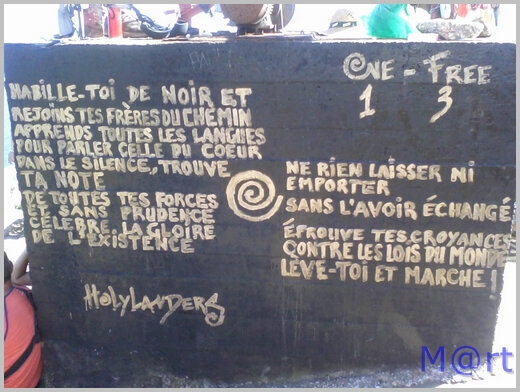 HABILLE-TOI DE NOIR ET
REJOINS TES FRÈRES DU CHEMIN
APPRENDS TOUTES LES LANGUES
POUR PARLER CELLE DU COEUR
DANS LE SILENCE, TROUVE
TA NOTE
DE TOUTES TES FORCES
ET SANS PRUDENCE
CÉLÈBRE LA GLOIRE
DE L'EXISTENCE
HOLYLANDERS
ONE - FREE
1 3
NE RIEN LAISSER NI
EMPORTER
SANS L'AVOIR ÉCHANGÉ
ÉPROUVE TES CROYANCES
CONTRE LES LOIS DU MONDE
LÈVE-TOI ET MARCHE !
M@rt